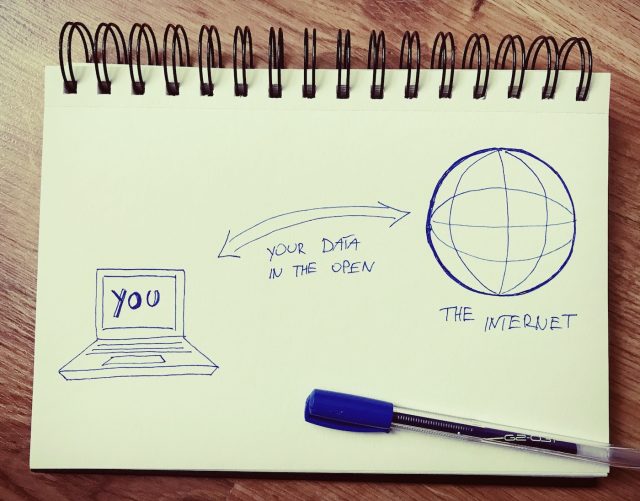 YOU
YOUR DATA
IN THE OPEN
THE INTERNET